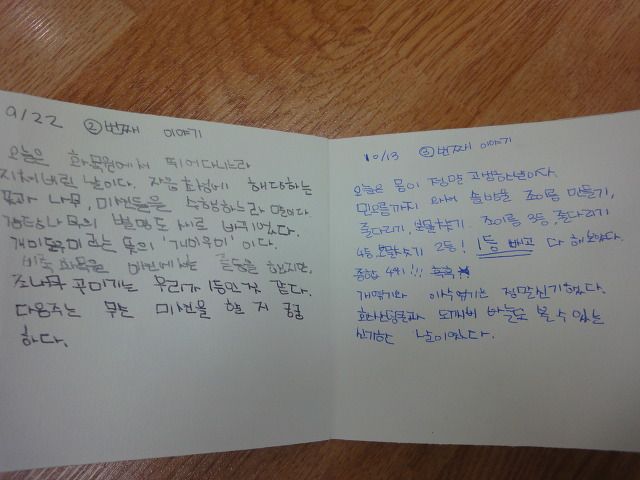 9/22 ② 번째 이야기
오늘은 화목원에서 뛰어다니느라
지쳐버린 날이다. 자음 초성에 해당하는
풀과 나무, 미션들을 수행하느라 말이다.
나무의 별명도 새로 바뀌었다.
뜻의 '개미우미' 이다.
비록 화목원 이번에는 꼴등을 했지만,
조나무 꾸미기는 우리가 1등인것 같다.
다음주는 무슨 미션을 할 지 궁금
하다.
10/13 ③ 번째 이야기
오늘은 몸이 정말 고생한날이다.
민요름까지 와서 솔방울 조이름 만들기,
줄다리기, 보물찾기. 조이름 3등, 줄다리기
4등, 보물찾기 2등! 1등 빼고 다 해보았다.
종합 4위!!!
개역귀와 이삭여뀌는 정말신기했다.
화살나무 도깨비 바늘도 볼 수 있는
신기한 날이었다.